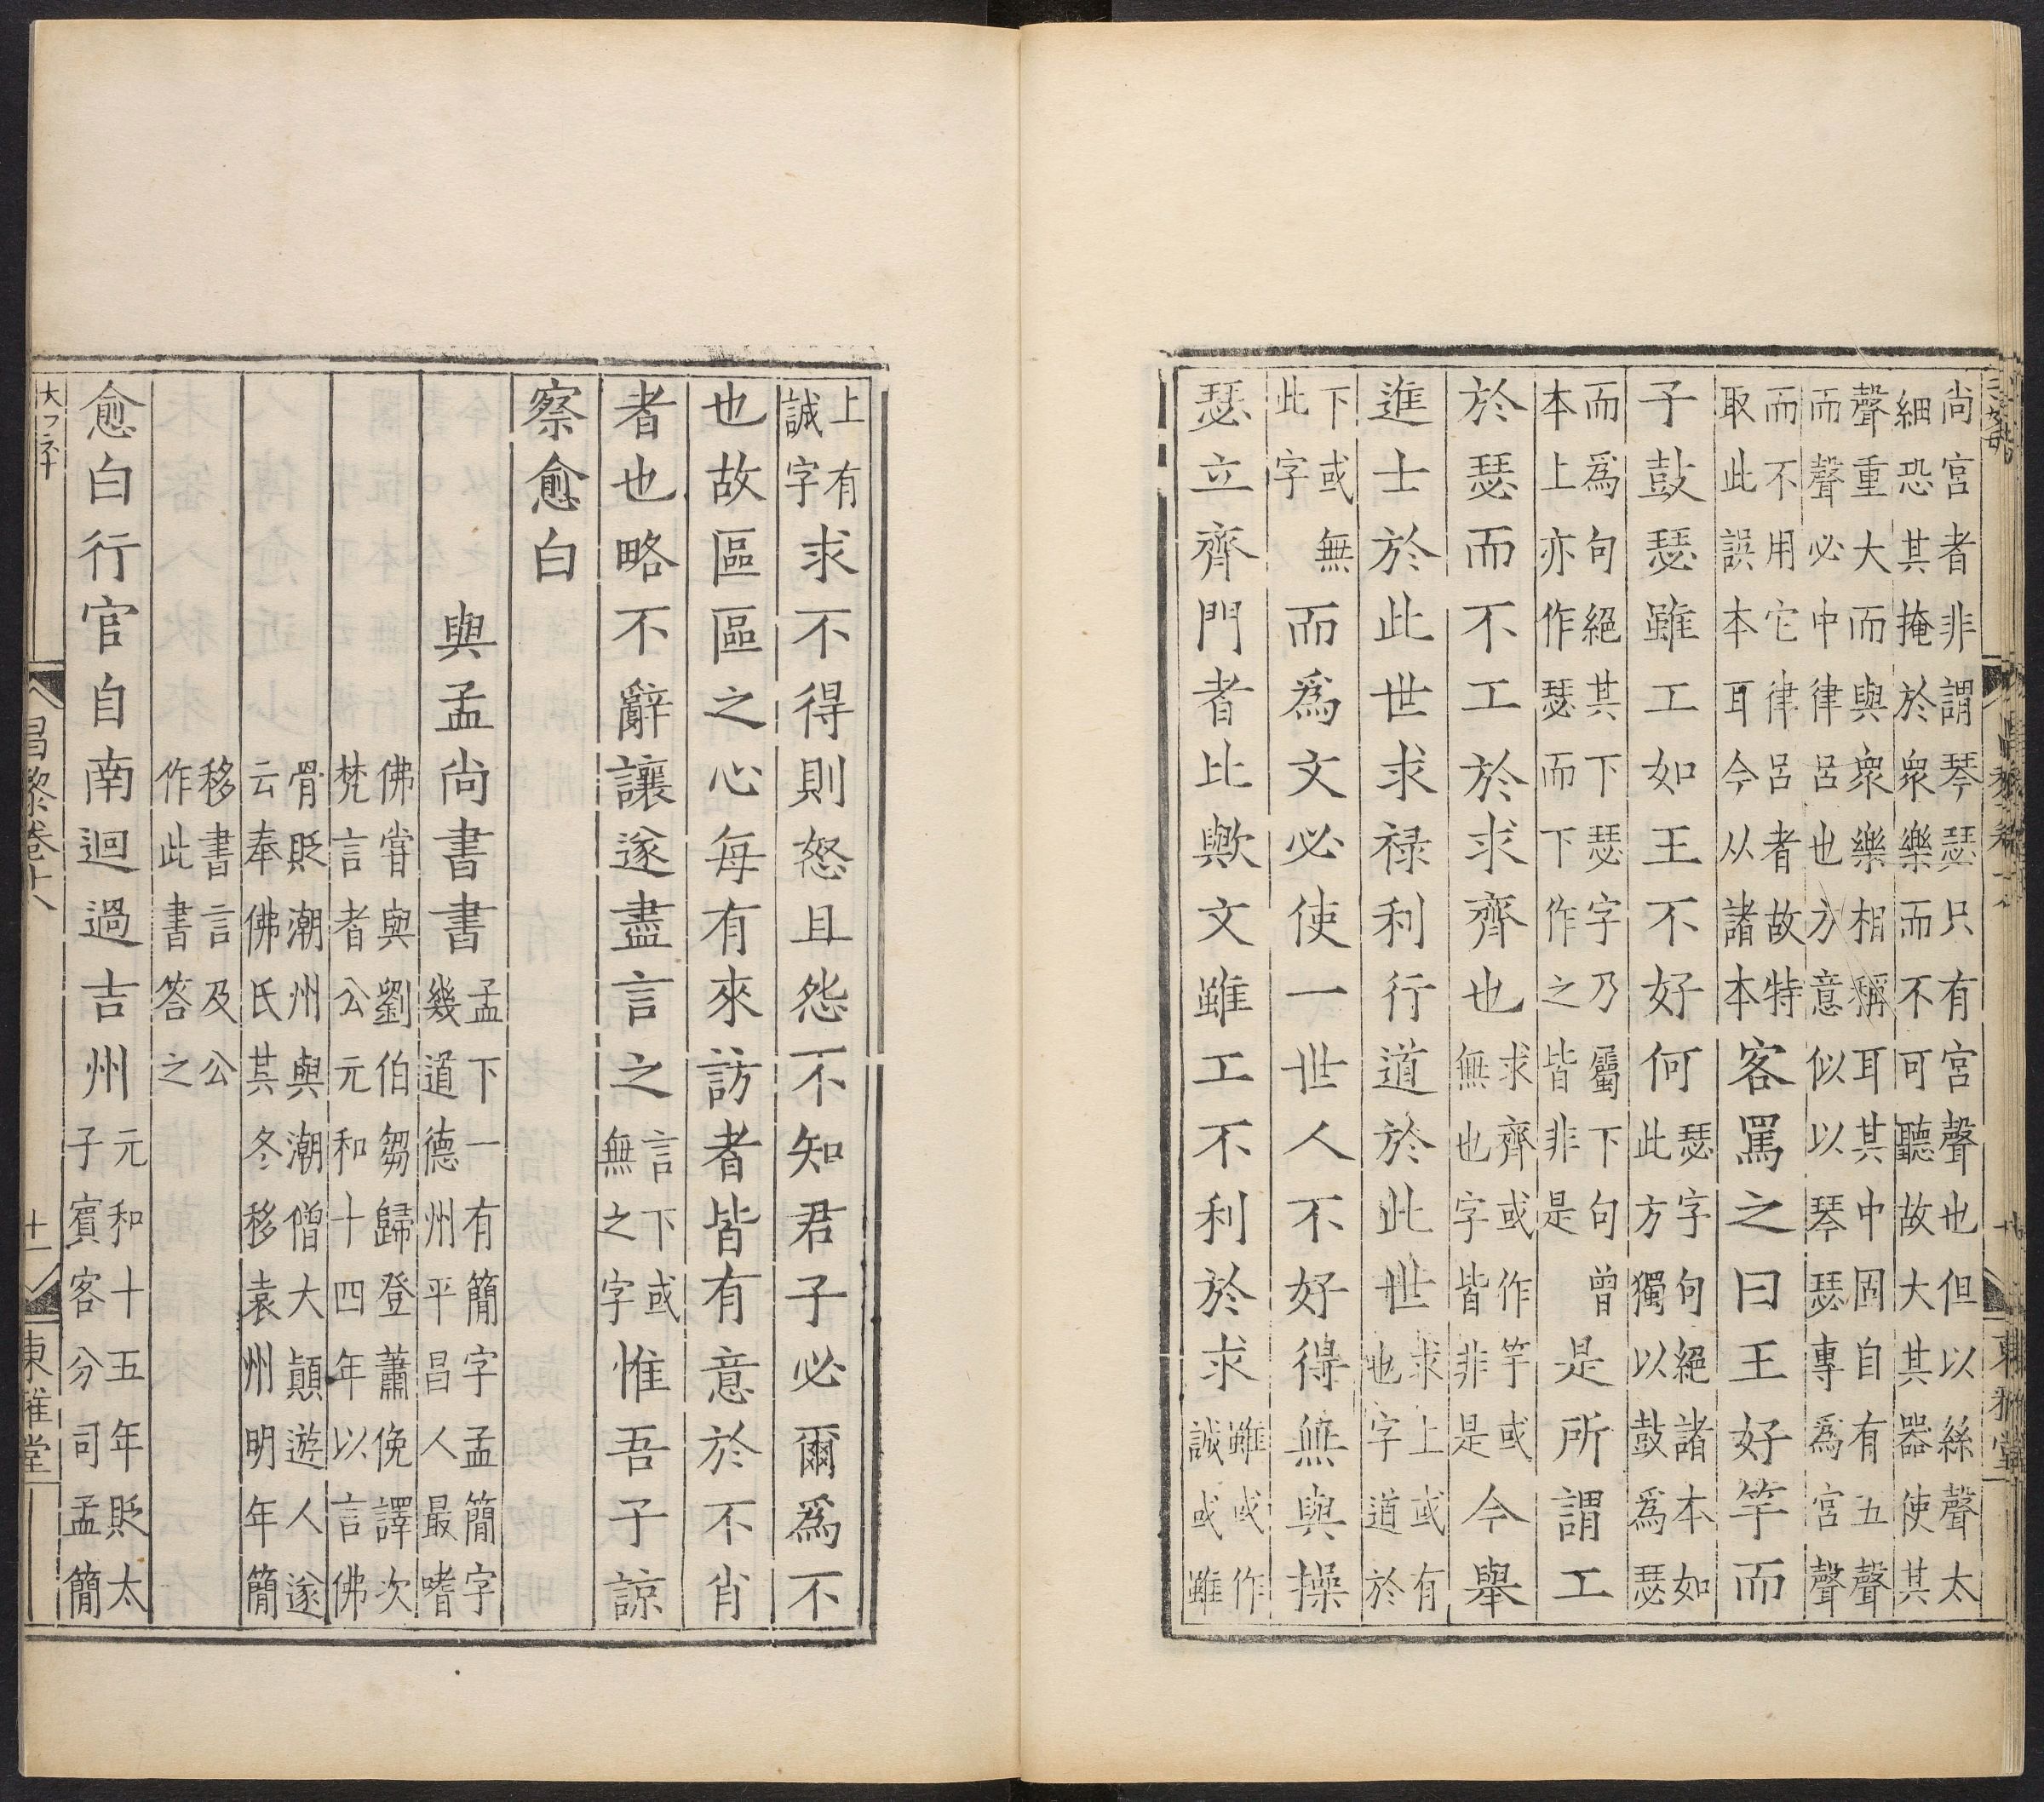 尚宮者非謂琴瑟只有宮聲也但以絲聲太
細恐其掩於衆樂而不可聽故大其器使其
聲重大而與衆樂相稱耳其中固自有五聲
而聲必中律呂也方意似以琴瑟專為宮聲
而不用它律呂者故特
取此誤本耳今从諸本
客罵之曰王好竽而
子鼓瑟雖工如王不好何
瑟字句絕諸本如
此方獨以鼓爲瑟
而爲句絕其下瑟字乃屬下句曾
本上亦作瑟而下作之皆非是
是所謂工
於瑟而不工於求齊也
求齊或作竽或
無也字皆非是
今舉
進士於此世求禄利行道於此世
求上或有
也字道於
下或無
此字
而爲文必使一世人不好得無與操
瑟立齊門者比歟文雖工不利於求
雖或作
誠或雖
上有
誠字
求不得則怒且怨不知君子必爾爲不
也故區區之心每有來訪者皆有意於不肖
者也略不辭讓遂盡言之
言下或
無之字
惟吾子諒
察愈白
與孟尚書書
孟下一有簡字孟簡字
幾道德州平昌人最嗜
佛嘗與劉伯芻歸登蕭俛譯次
梵言者公元和十四年以言佛
骨貶潮州與潮僧大顛遊人遂
云奉佛氏其冬移袁州明年簡
移書言及公
作此書答之
愈白行官自南迴過吉州
元和十五年貶太
子賓客分司孟簡
昌黎卷十八
十一
東雅堂